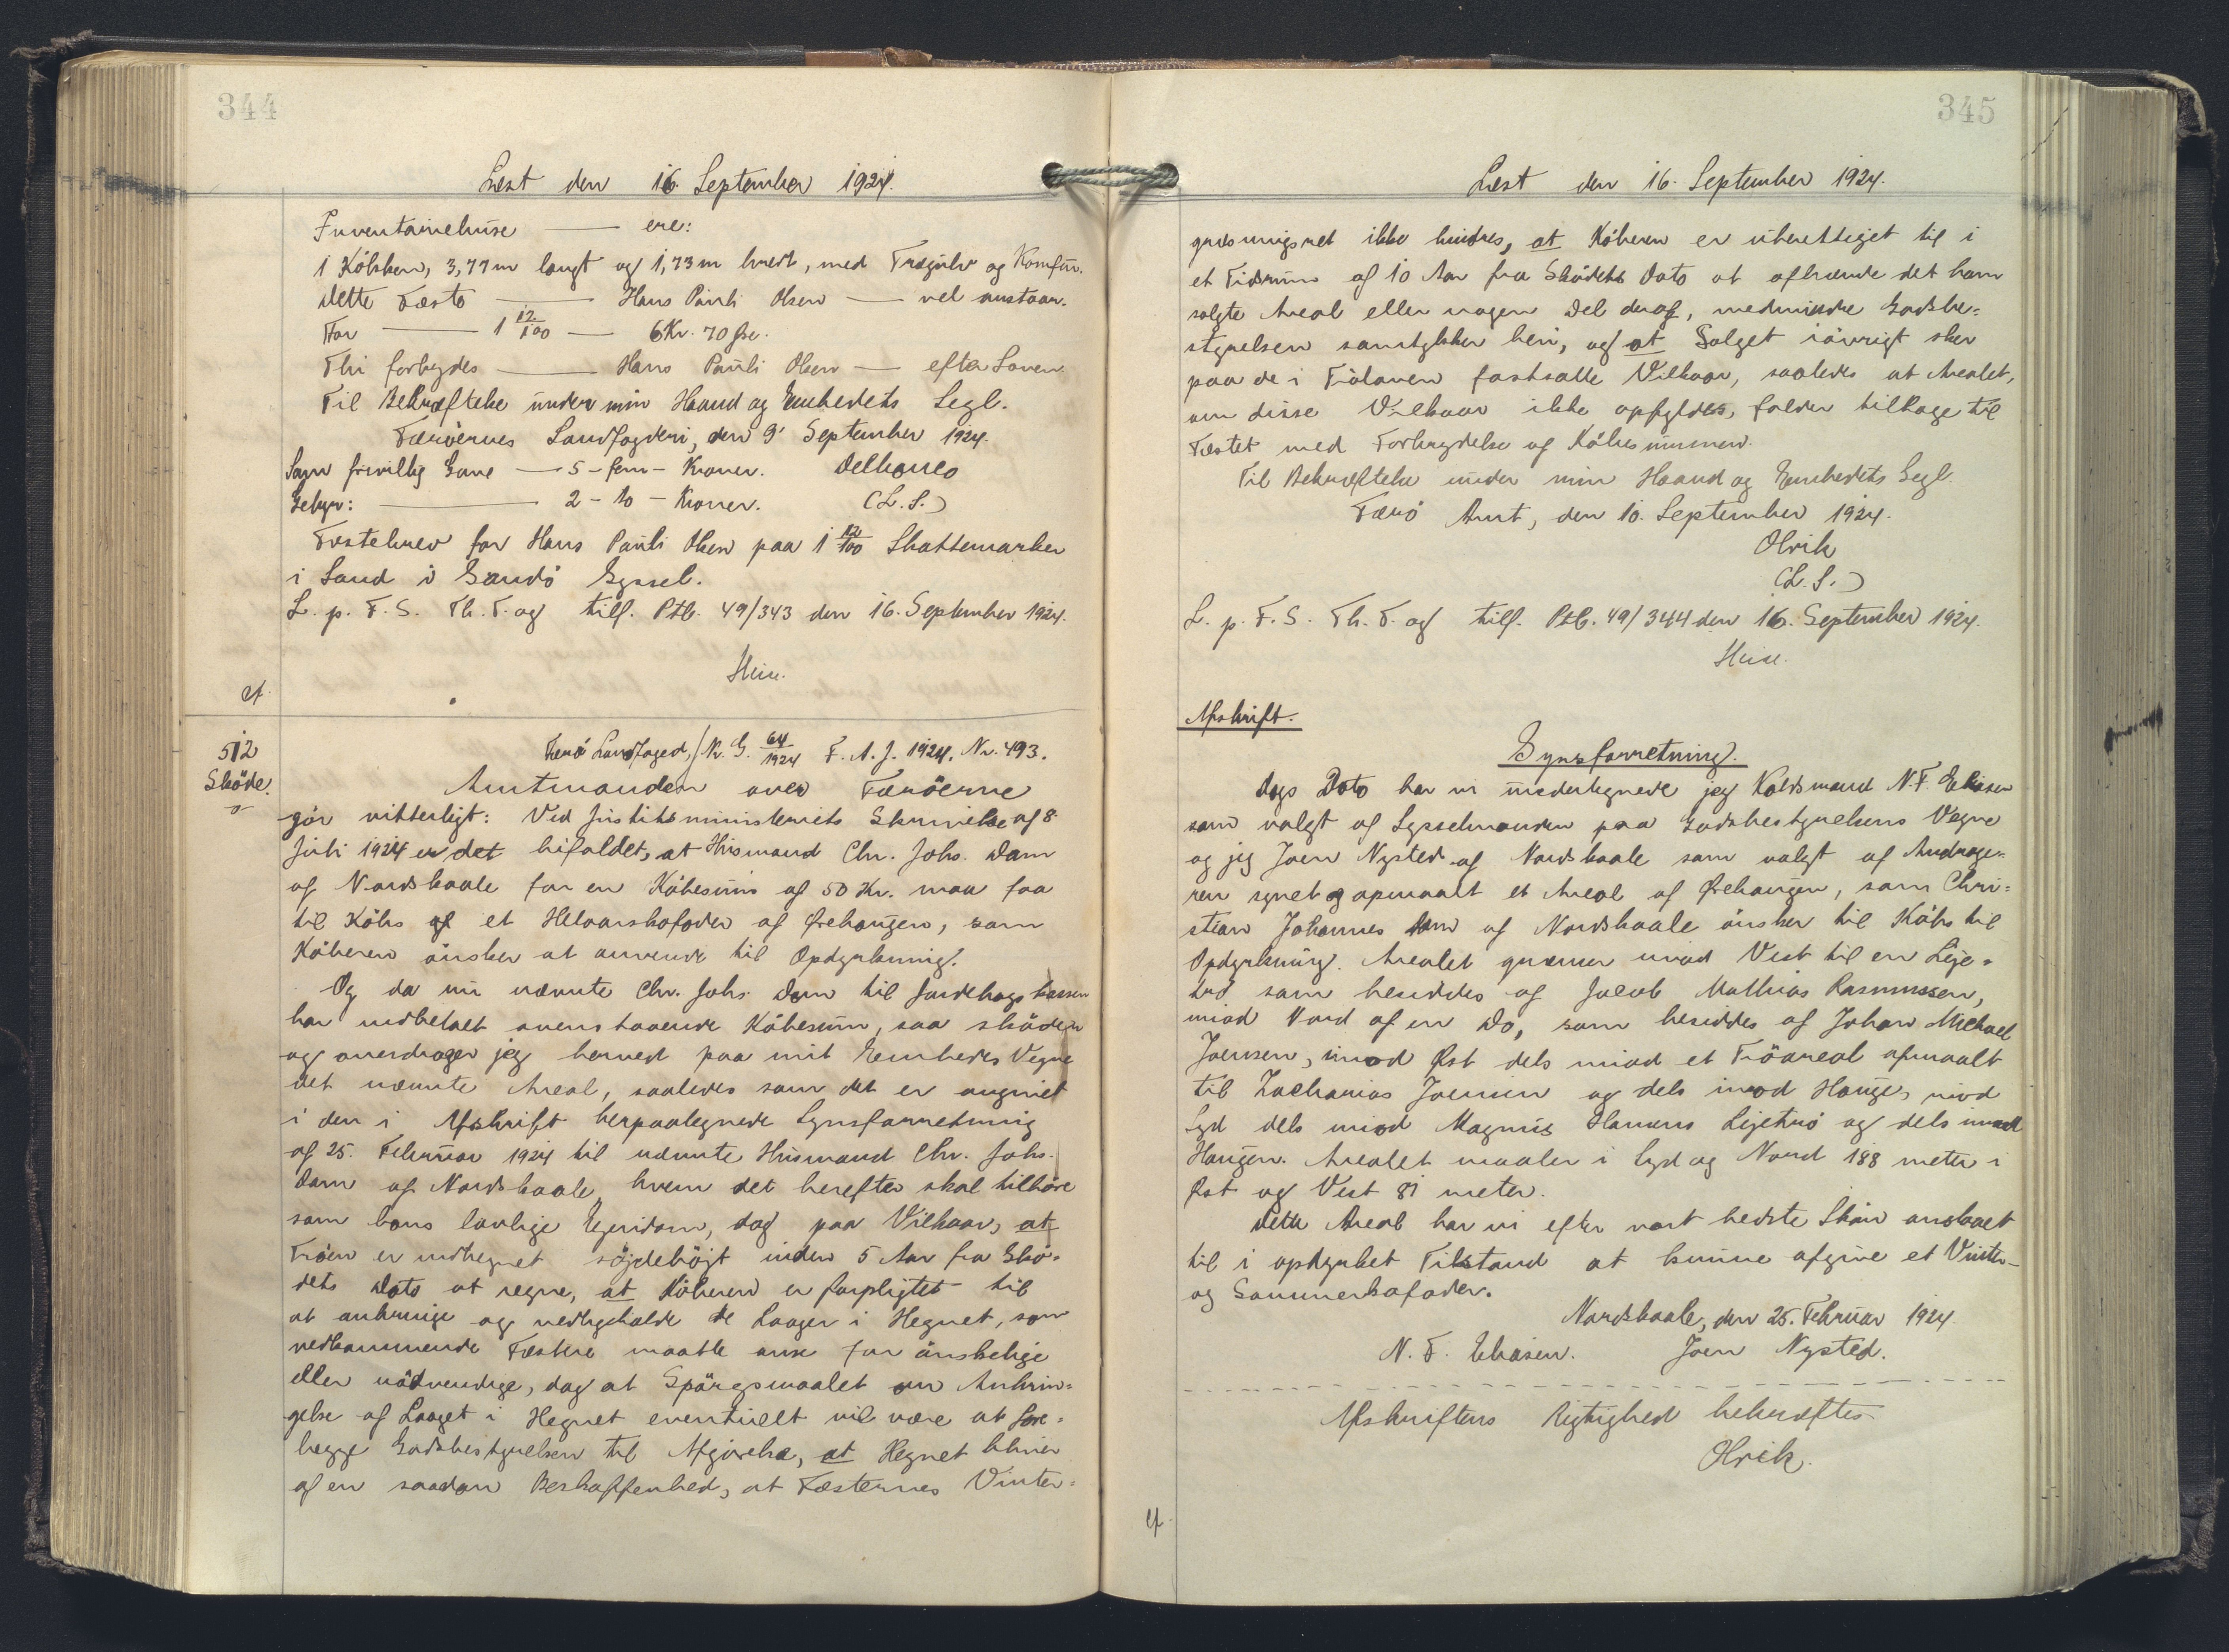 344
Læst den 16. September 1924.
Inventariehuse —— ere:
1 Kökken, 3,77 m langt og 1,73 m bredt, med Trægulv og Komfur.
Dette Fæste —— Hans Pauli Olsen —— vel anstaar.
For —— 1 12/100 —— 6 Kr. 70 Øre.
Thi forbydes —— Hans Pauli Olsen —— efter Loven.
Til Bekræftelse under min Haand og Embedets Segl.
Færöernes Landfogderi, den 9' September 1924.
Som frivillig Gave — 5 - fem - Kroner. Delbanco
Gebyr: —— 2 - to - Kroner. (L. S.)
Fæstebrev for Hans Pauli Olsen paa 1 12/100 Skattemarker
i Sand i Sandö Syssel.
L. p. F. S. Th. T. og tilf. Ptb. 49/343 den 16. September 1924.
Heise.
cf.
512
Sköde.
Færö Landfoged, /K. G. 64/1924 F. A. J. 1924. Nr. 493.
Amtmanden over Færöerne
gör vitterligt: Ved Justitsministeriets Skrivelse af 8.
Juli 1924 er det bifaldet, at Husmand Chr. Johs. Dam
af Nordskaale for en Köbesum af 50 Kr. maa faa
til Köbs af et Helaarskofoder af Ørehaugen, som
Köberen önsker at anvende til Opdyrkning.
Og da nu nævnte Chr. Johs. Dam til Jordebogskassen
har indbetalt ovenstaaende Köbesum, saa sköder
og overdrager jeg herved paa mit Embedes Vegne
det nævnte Areal, saaledes som det er angivet
i den i Afskrift herpaategnede Synsforretning
af 25. Februar 1924 til nævnte Husmand Chr. Johs.
Dam af Nordskaale, hvem det herefter skal tilhöre
som hans lovlige Ejendom, dog paa Vilkaar, at
Tröen er indhegnet söjdehöjt inden 5 Aar fra Skö-
dets Dato at regne, at Köberen er forpligtet til
at anbringe og vedligeholde de Laager i Hegnet, som
vedkommende Fæstere maatte anse for önskelige
eller nödvendige, dog at Spörgsmaalet om Anbrin-
gelse af Laaget i Hegnet eventuelt vil være at fore-
lægge Godsbestyrelsen til Afgörelse, at Hegnet bliver
af en saadan Beskaffenhed, at Fæsternes Vinter-
345
Læst den 16. September 1924.
græsningsret ikke hindres, at Köberen er uberettiget til i
et Tidsrum af 10 Aar fra Sködets Dato at afhænde det ham
solgte Areal eller nogen Del deraf, medmindre Godsbe-
styrelsen samtykker heri, og at Salget iövrigt sker
paa de i Tröloven fastsatte Vilkaar, saaledes at Arealet,
om disse Vilkaar ikke opfyldes, falder tilbage til
Fæstet med Forbrydelse af Köbesummen.
Til Bekræftelse under min Haand og Embedets Segl.
Færö Amt, den 10. September 1924.
Olrik
(L. S.)
L. p. F. S. Th. T. og tilf. Ptb. 49/344 den 16. September 1924.
Heise.
Afskrift.
Synsforretning.
Dags Dato har vi undertegnede jeg Kaldsmand N. F. Eliasen
som valgt af Sysselmanden paa Godsbestyrelsens Vegne
og jeg Joen Nysted af Nordskaale som valgt af Andrage-
ren synet og opmaalt et Areal af Ørehaugen, som Chri-
stian Johannes Dam af Nordskaale önsker til Köbs til
Opdyrkning. Arealet grænser imod Vest til en Leje-
trö som besiddes af Jacob Mathias Rasmussen,
imod Nord af en Do, som besiddes af Johan Michael
Joensen, imod Øst dels imod et Tröareal opmaalt
til Zacharias Joensen og dels imod Haugen, imod
Syd dels imod Magnus Hansens Lejetrö og dels imod
Haugen. Arealet maaler i Syd og Nord 188 meter i
Øst og Vest 81 meter.
Dette Areal har vi efter vort bedste Skön anslaaet
til i opdyrket Tilstand at kunne afgive et Vinter-
og Sommerkofoder.
Nordskaale, den 25. Februar 1924.
N. F. Eliasen. Joen Nysted.
Afskriftens Rigtighed bekræftes
Olrik.
cf.